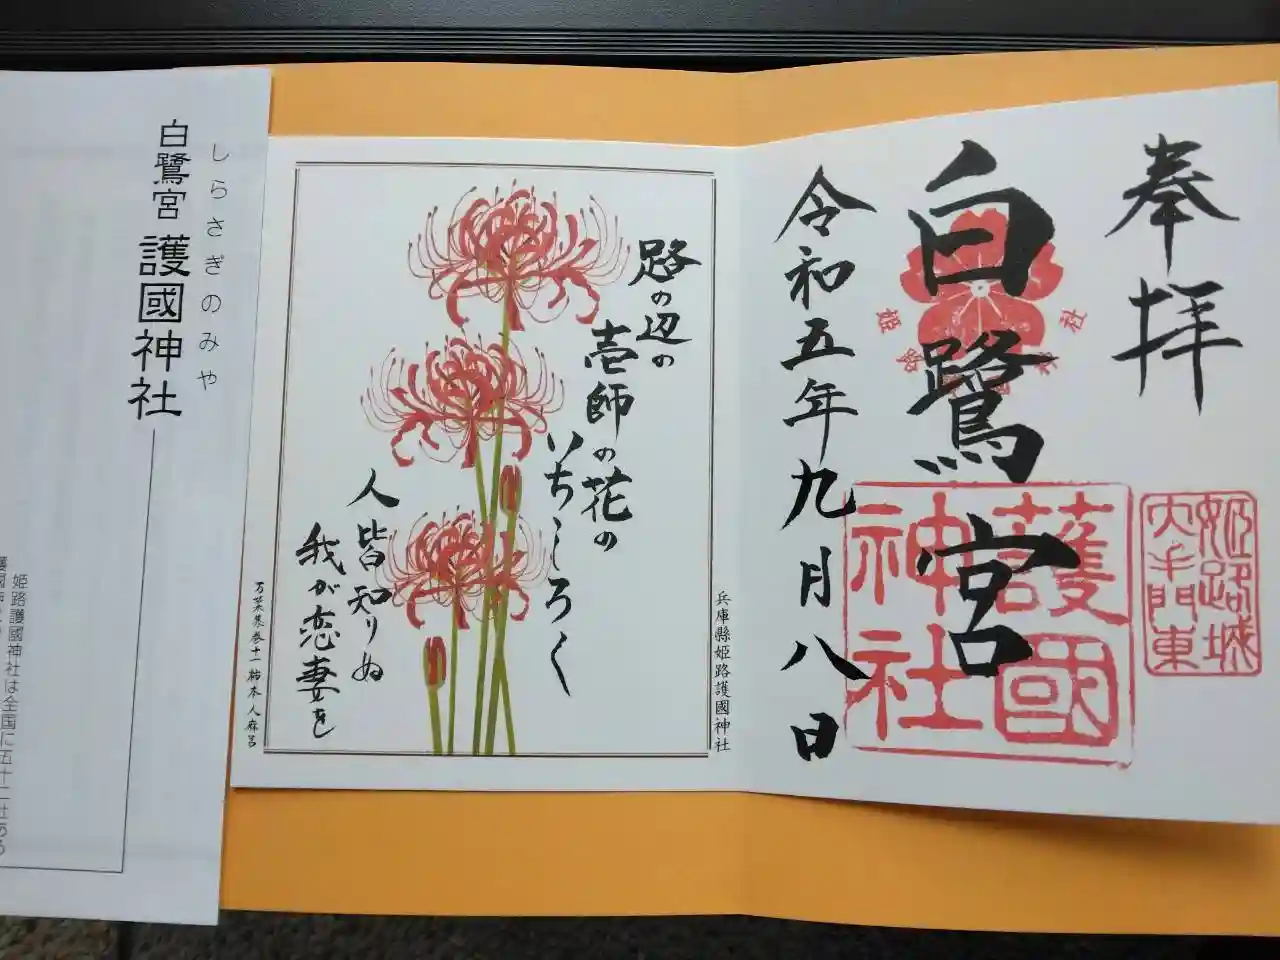 奉拝
白鷺宮
令和五年九月八日
護國
神社
姫路城
大手門東
兵庫縣姫路護國神社
路の辺の
壱師の花の
いちしろく
人皆知りぬ
我が恋妻を
万葉集巻十一 柿本人麻呂
しらさぎのみや
白鷺宮 護國神社
姫路護國神社は全国に五十二社ある